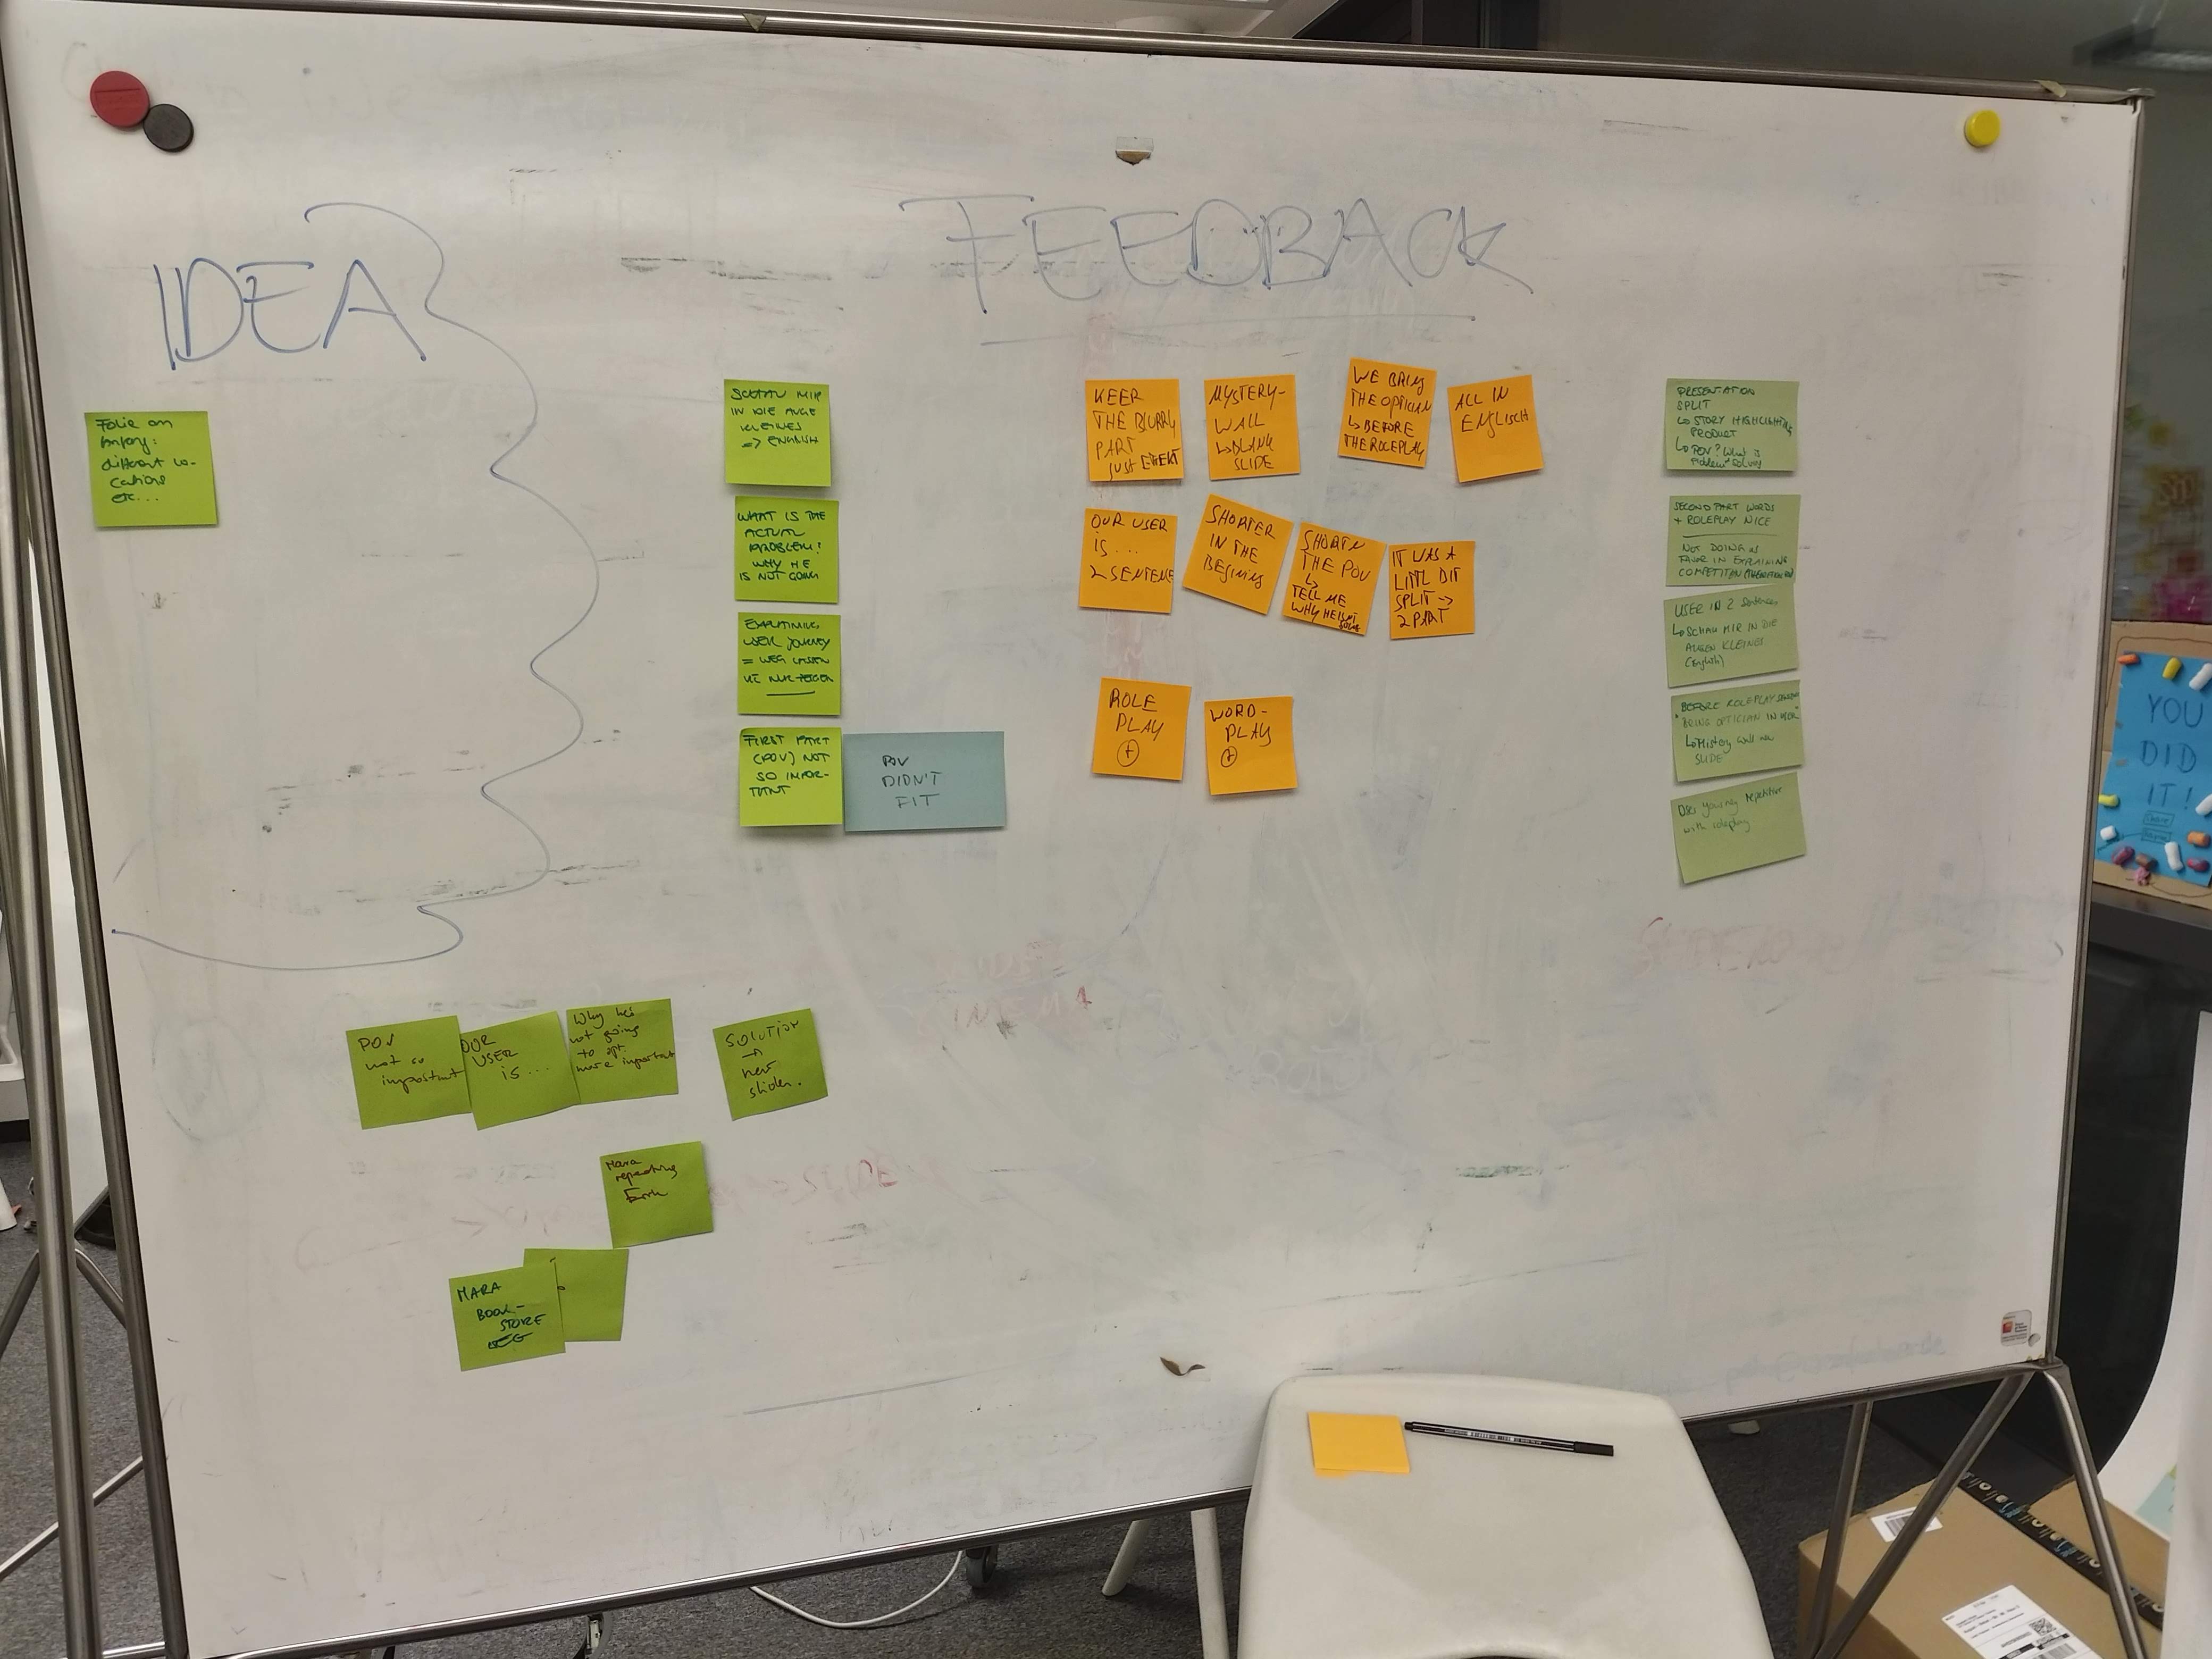 IDEA
FEEDBACK
Folie am
different lo-
cations
etc...
SCHAU MIR
IN DIE AUGE
KLEINES
=> ENGLISH
WHAT IS THE
ACTUAL
PROBLEM?
WHY HE
IS NOT GOING
USER JOURNEY
= WEG LASSEN
FIRST PART
(POV) NOT
SO IMPOR-
TANT
POV
DIDN'T
FIT
KEEP
THE BLURRY
PART
JUST EFFEKT
MYSTERY-
WALL
↳ BLANK
SLIDE
WE BRING
THE OPTICIAN
↳ BEFORE
THE ROLEPLAY
ALL IN
ENGLISCH
OUR USER
IS ...
2 SENTENCE
SHORTER
IN THE
BEGINING
SHORTN
THE POV
↳
TELL ME
WHY HE ISNT
GOING
IT WAS A
LITTL BIT
SPLIT ->
2 PART
ROLE
PLAY
+
WORD-
PLAY
+
PRESENTATION
SPLIT
↳ STORY HIGHLIGHTING
PRODUCT
↳ POV? What is
problem solved
SECOND PART WORDS
+ ROLEPLAY NICE
NOT DOING A
FAVOR IN EXPLAINING
USER IN 2 Sentences
↳ SCHAU MIR IN DIE
AUGEN KLEINES
(English)
BEFORE ROLEPLAY
"BRING OPTICIAN IN
↳ Mistery wall
SLIDE"
User journey repetitive
with roleplay
POV
not so
important
OUR
USER
is ...
Why he's
not going
to opt.
more important
SOLUTION
->
new
Mara
repeating
MARA
BOOK-
STORE
YOU
DID
IT!